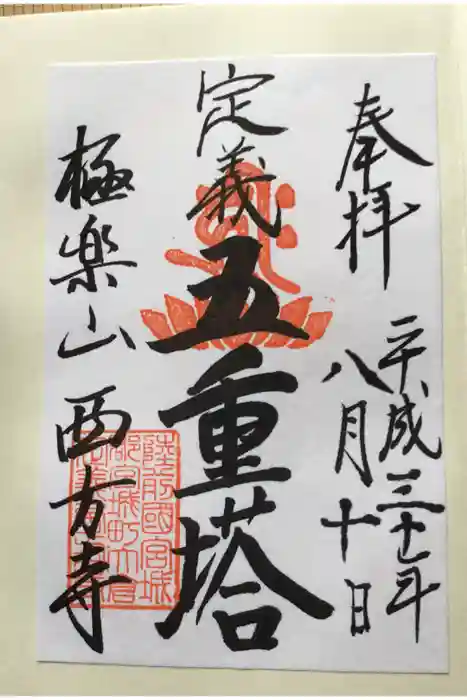 奉拝
平成二十七年
八月十日
定義
五重塔
極楽山 西方寺
陸前國宮城
郡宮城町大倉